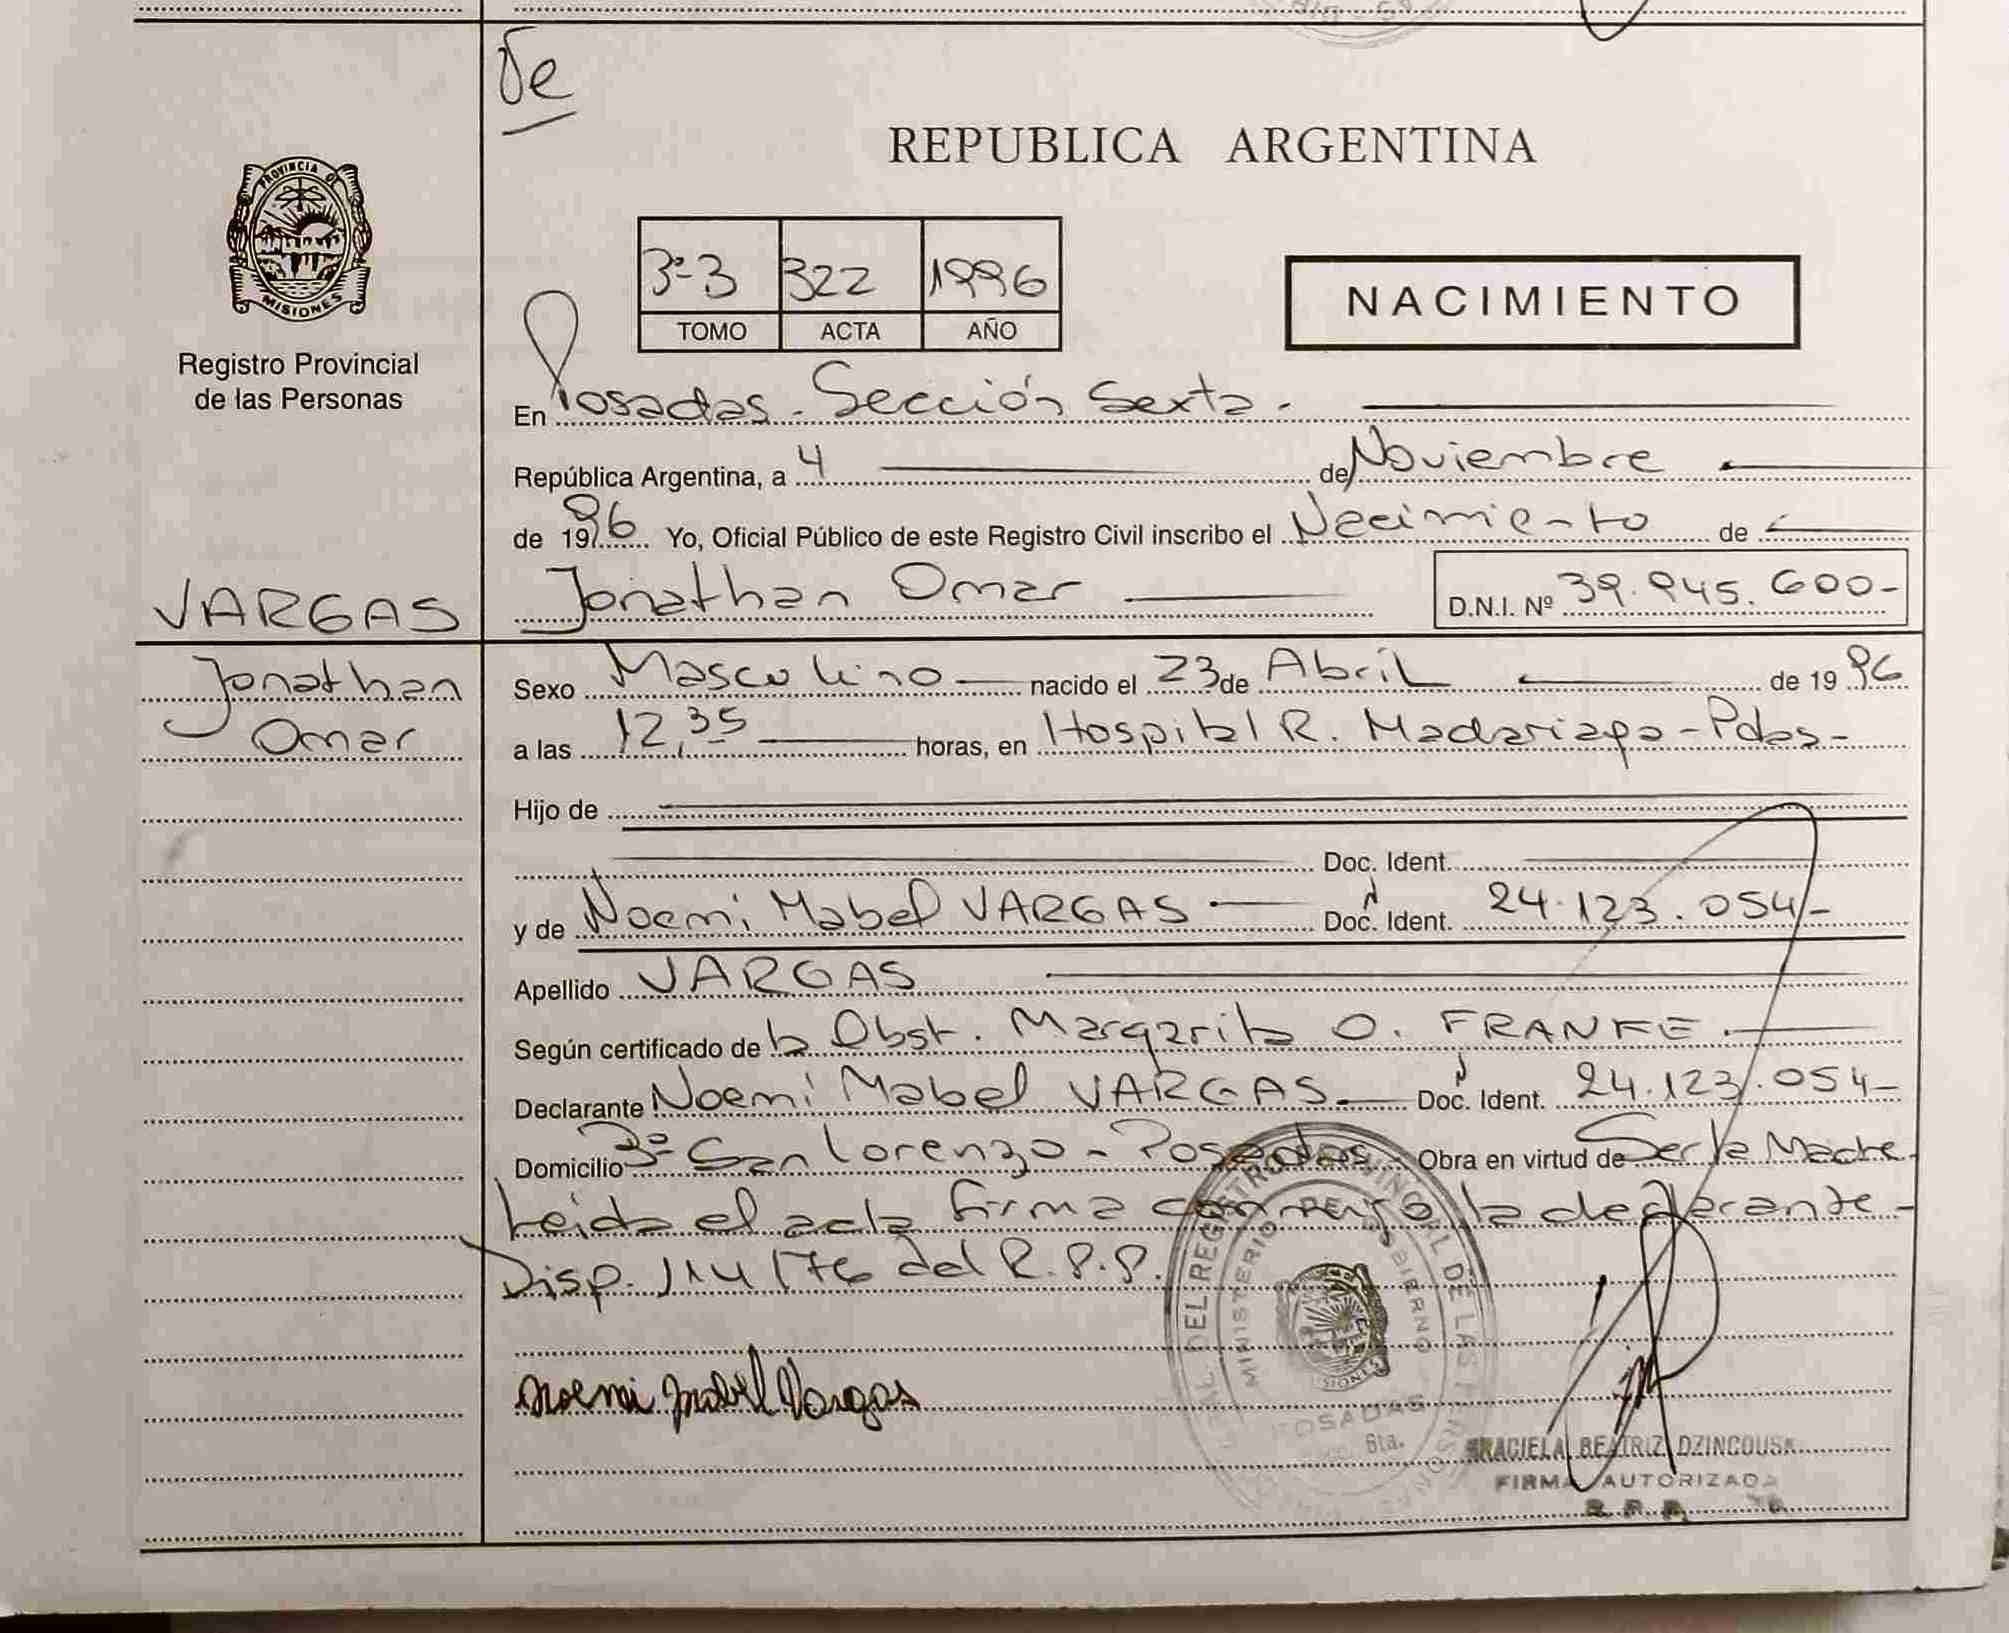 Je
REPUBLICA ARGENTINA
PROVINCIA DE
MISIONES
Registro Provincial
de las Personas
3º-3 322 1996
TOMO ACTA AÑO
NACIMIENTO
En Posadas - Sección Sexta -
República Argentina, a 4 de Noviembre
de 1996 Yo, Oficial Público de este Registro Civil inscribo el Nacimiento de
VARGAS Jonathan Omar D.N.I. Nº 39.945.600-
Jonathan
Omar
Sexo Masculino nacido el 23 de Abril de 1996
a las 12,35 horas, en Hospital R. Madariaga - Pdas -
Hijo de
Doc. Ident.
y de Noemi Mabel VARGAS Doc. Ident. 24.123.054-
Apellido VARGAS
Según certificado de la Obst. Margarita O. FRANKE
Declarante Noemi Mabel VARGAS Doc. Ident. 24.123.054-
Domicilio 3º San Lorenzo - Posadas - Obra en virtud de Ser la Madre
Leida el acta firma conmigo la declarante -
Disp. 114/76 del R.P.P.
MINISTERIO DE GOBIERNO
POSADAS
6ta.
Noemi Mabel Vargas
GRACIELA BEATRIZ DZINCOUSK
FIRMA AUTORIZADA